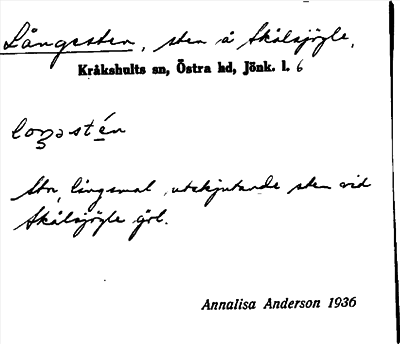 Långesten, sten å Skålsjögle,
Kråkshults sn, Östra hd, Jönk. l. 6
loŋəstén
Stor, långsmal, utskjutande sten vid
Skålsjögle göl.
Annalisa Anderson 1936